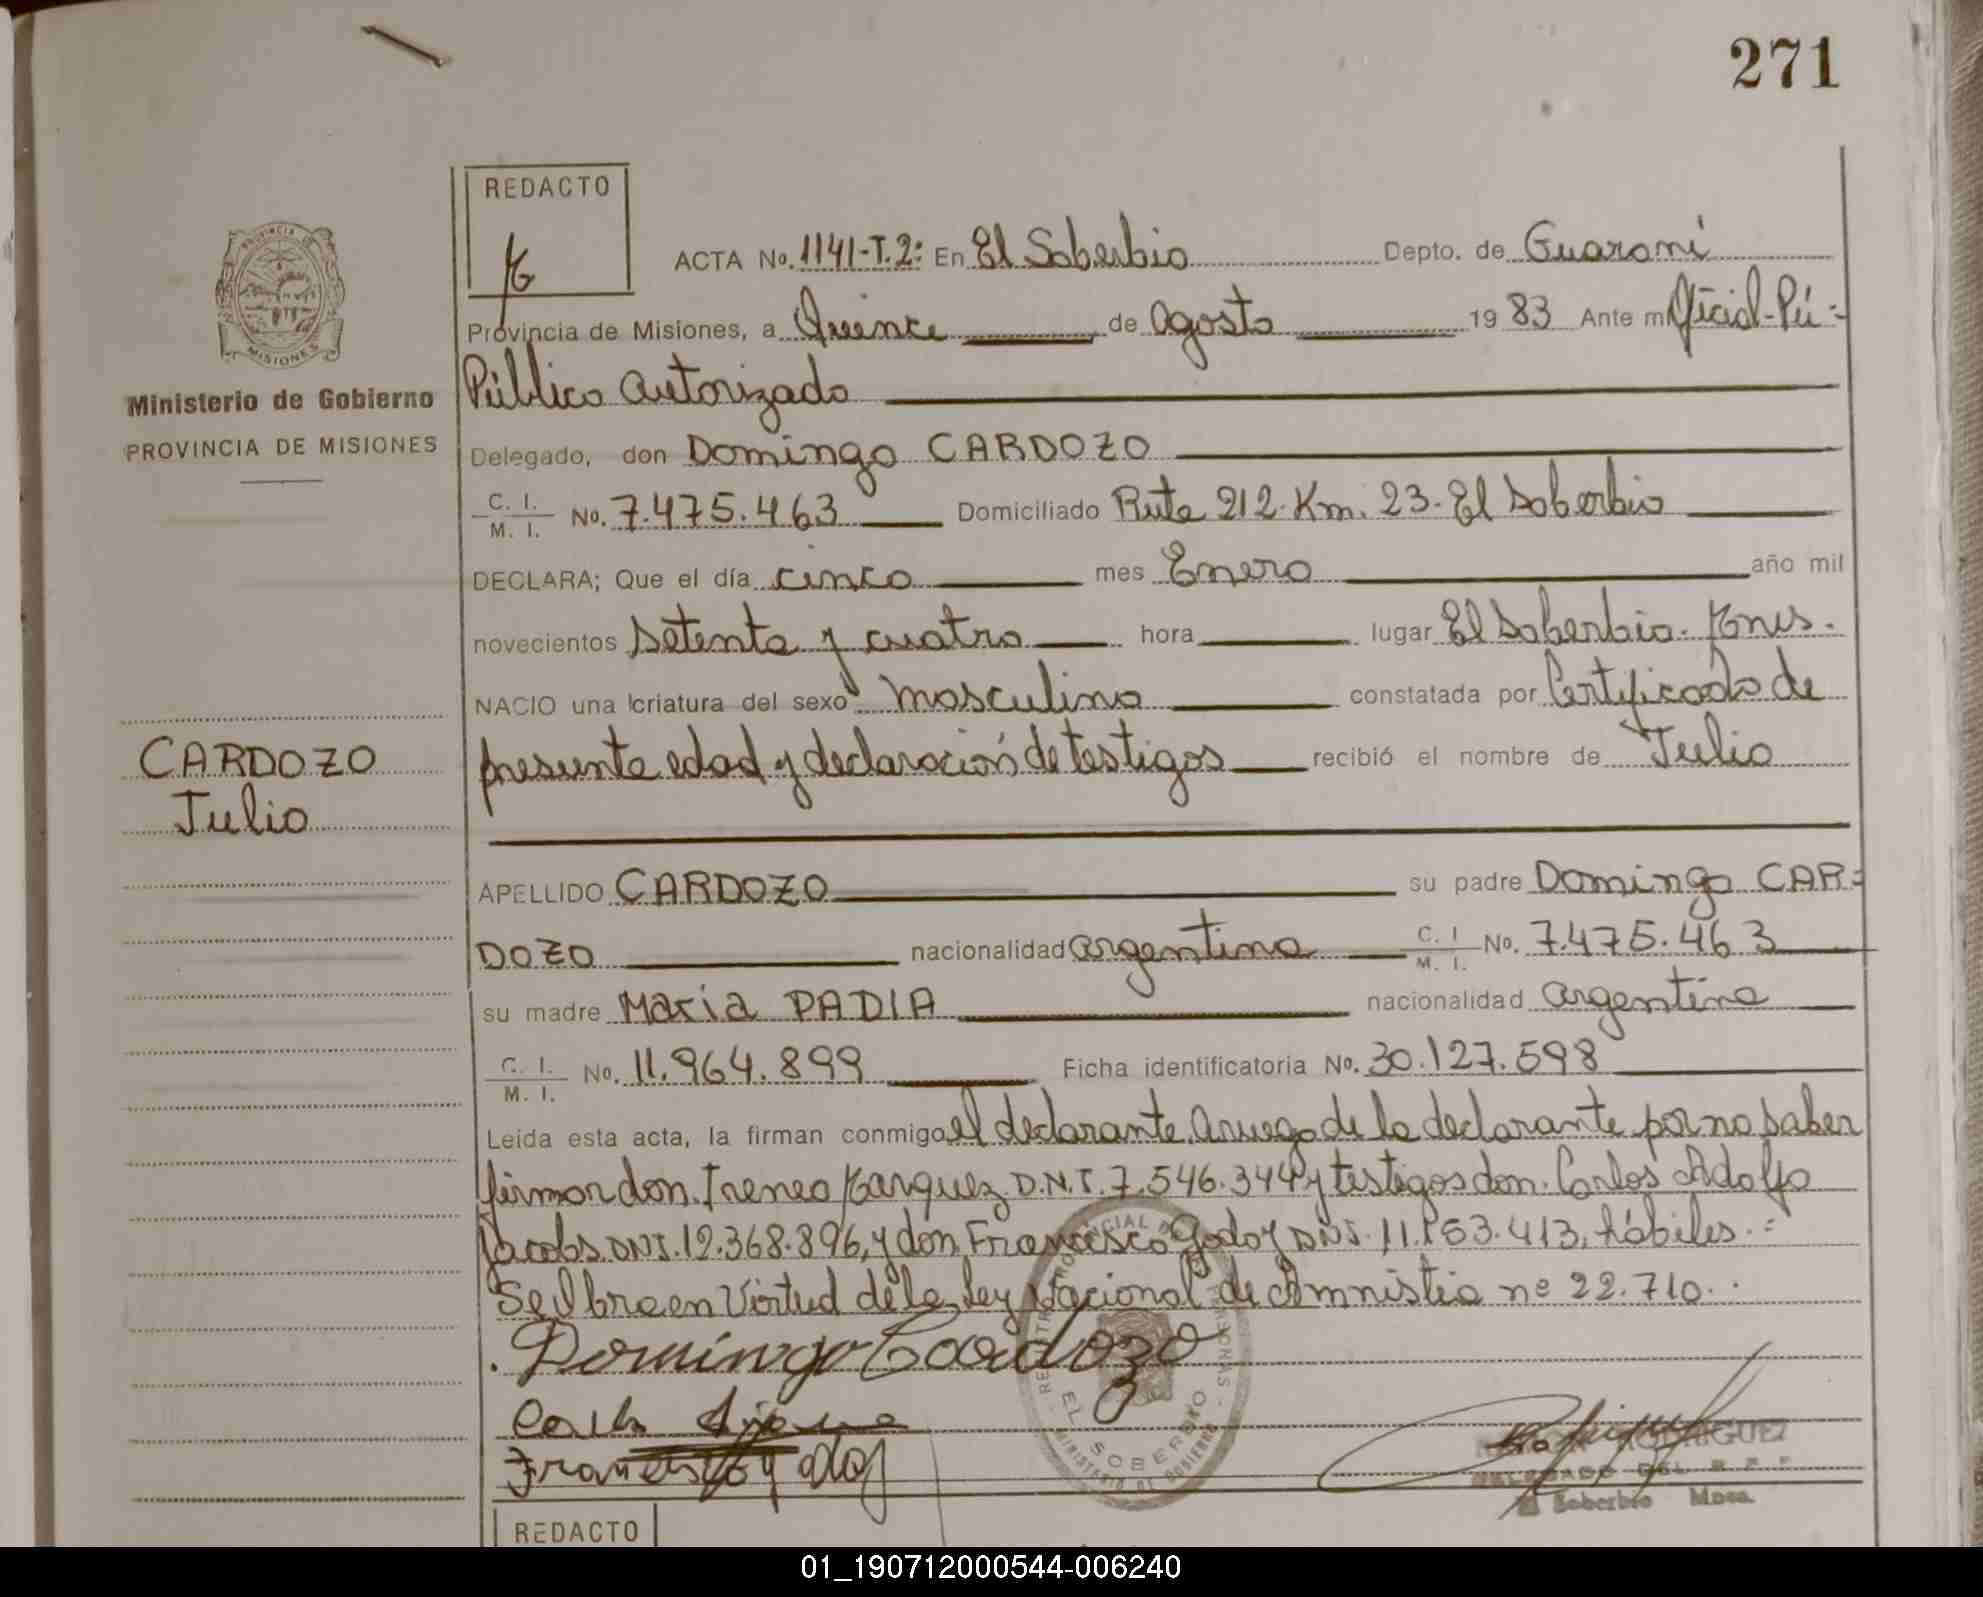 271
REDACTO
ACTA No. 1141-T.2: En El Soberbio Depto. de Guaraní
Provincia de Misiones, a Quince de Agosto 1983 Ante mí Oficial-Pú-
Público Autorizado
Ministerio de Gobierno
PROVINCIA DE MISIONES
Delegado, don Domingo CARDOZO
C. I. / M. I. No. 7.475.463 Domiciliado Ruta 212-Km. 23-El Soberbio
DECLARA; Que el día cinco mes Enero año mil
novecientos setenta y cuatro hora lugar El Soberbio-
NACIO una criatura del sexo masculino constatada por Certificado de
presunta edad y declaración de testigos recibió el nombre de Julio
CARDOZO
Julio
APELLIDO CARDOZO su padre Domingo CAR=
DOZO nacionalidad argentina C. I / M. I. No. 7.475.463
su madre Maria PADIA nacionalidad argentina
C. I. / M. I. No. 11.964.899 Ficha identificatoria No. 30.127.598
Leída esta acta, la firman conmigo el declarante, a ruego de la declarante por no saber
firmar don Ireneo Marquez D.N.I. 7.546.344 y testigos don Carlos Adolfo
Jacobs DNI. 12.368.896, y don Francisco Godoy DNI. 11.153.413, hábiles.=
Se labra en Virtud de la Ley Nacional de Amnistia nº 22.710.
Domingo Cardozo
Francisco Godoy
EL SOBERBIO
MINISTERIO DE GOBIERNO
RODRIGUEZ
DELEGADO DEL R P P
El Soberbio Mnes.
REDACTO
01_190712000544-006240